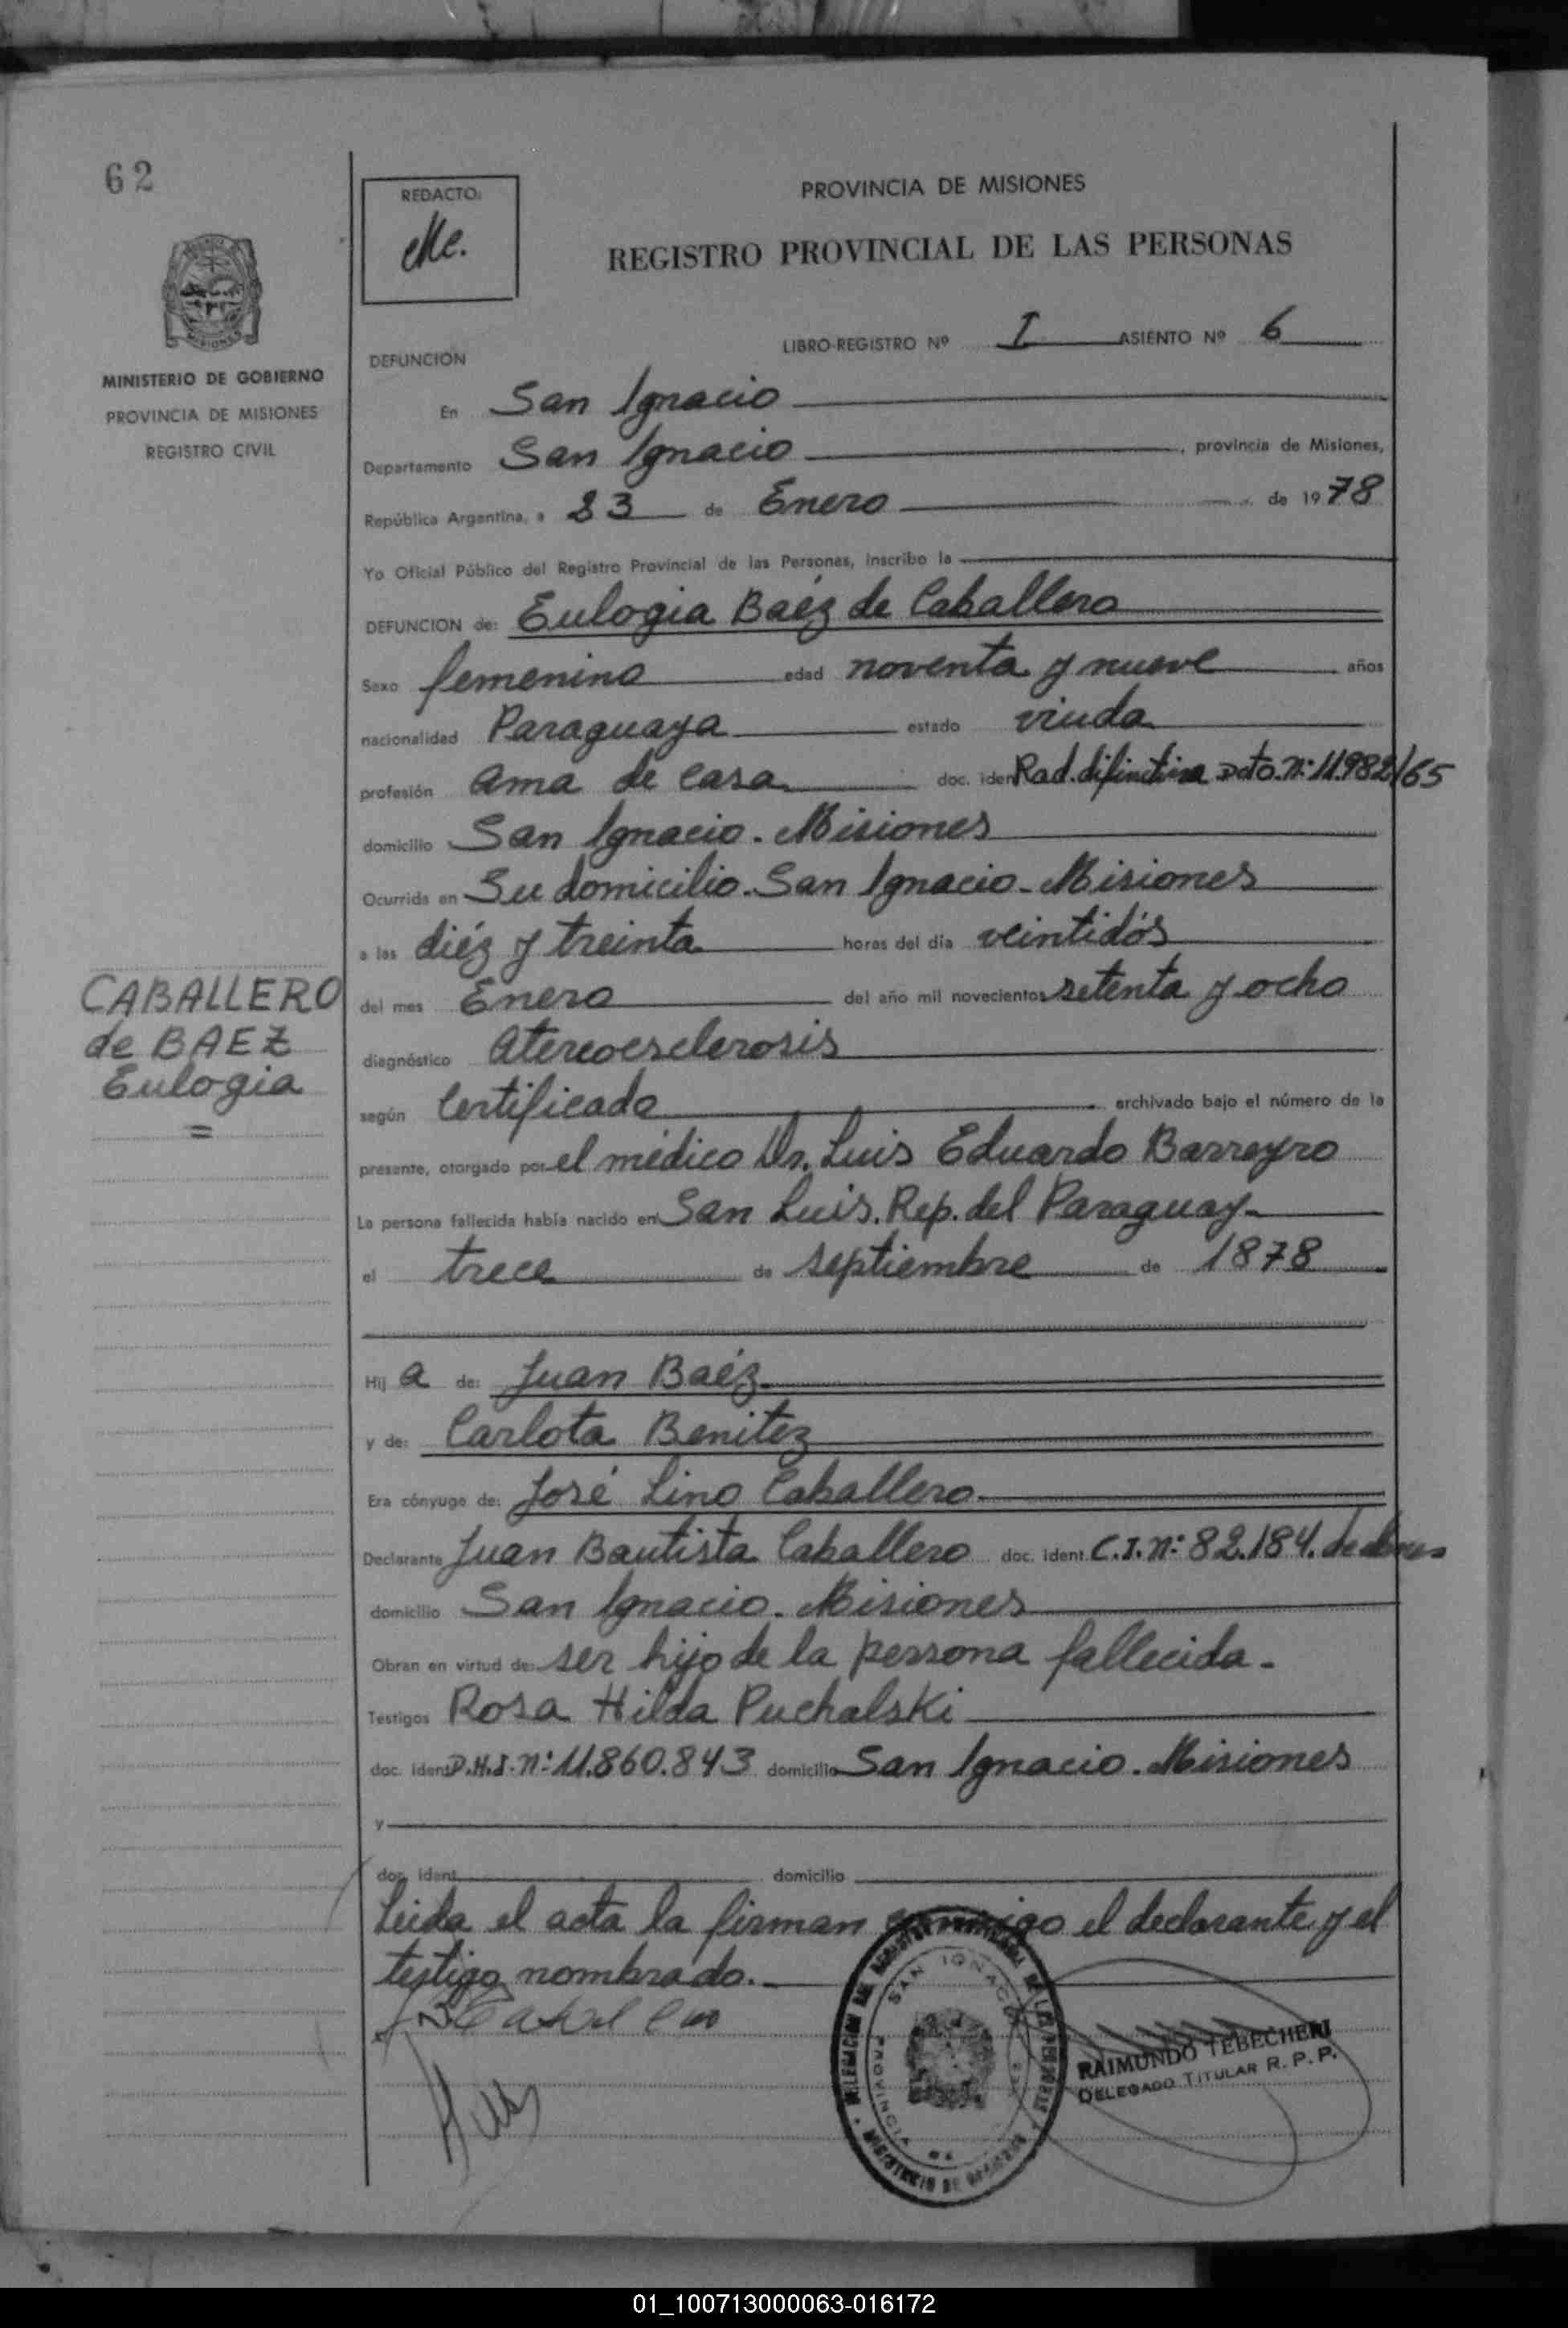 62
REDACTO:
Me.
PROVINCIA DE MISIONES
REGISTRO PROVINCIAL DE LAS PERSONAS
MINISTERIO DE GOBIERNO
PROVINCIA DE MISIONES
REGISTRO CIVIL
LIBRO-REGISTRO Nº I ASIENTO Nº 6
DEFUNCION
En San Ignacio
Departamento San Ignacio , provincia de Misiones,
República Argentina, a 23 de Enero de 1978
Yo Oficial Público del Registro Provincial de las Personas, inscribo la
DEFUNCION de: Eulogia Baéz de Caballero
Sexo femenino edad noventa y nueve años
nacionalidad Paraguaya estado viuda
profesión ama de casa doc. iden Rad. difinitiva Dcto. Nº: 11.982/65
domicilio San Ignacio. Misiones
Ocurrida en Su domicilio. San Ignacio - Misiones
a las diéz y treinta horas del día veintidós
del mes Enero del año mil novecientos setenta y ocho
CABALLERO
de BAEZ
Eulogia
=
diagnóstico atereoesclerosis
según Certificado archivado bajo el número de la
presente, otorgado por el médico Dr. Luis Eduardo Barreyro
La persona fallecida había nacido en San Luis. Rep. del Paraguay-
el trece de septiembre de 1878
Hij a de: Juan Baéz
y de: Carlota Benitez
Era cónyuge de: José Lino Caballero
Declarante Juan Bautista Caballero doc. ident. C.I. nº: 82.184.
domicilio San Ignacio. Misiones
Obran en virtud de: ser hijo de la persona fallecida-
Testigos Rosa Hilda Puchalski
doc. ident D.N.I. nº: 11.860.843 domicilio San Ignacio. Misiones
y
doc. ident. domicilio
Leida el acta la firman conmigo el declarante y el
testigo nombrado.
SAN IGNACIO
PROVINCIA DE
RAIMUNDO TEBECHERI
DELEGADO TITULAR R. P. P.
01_100713000063-016172